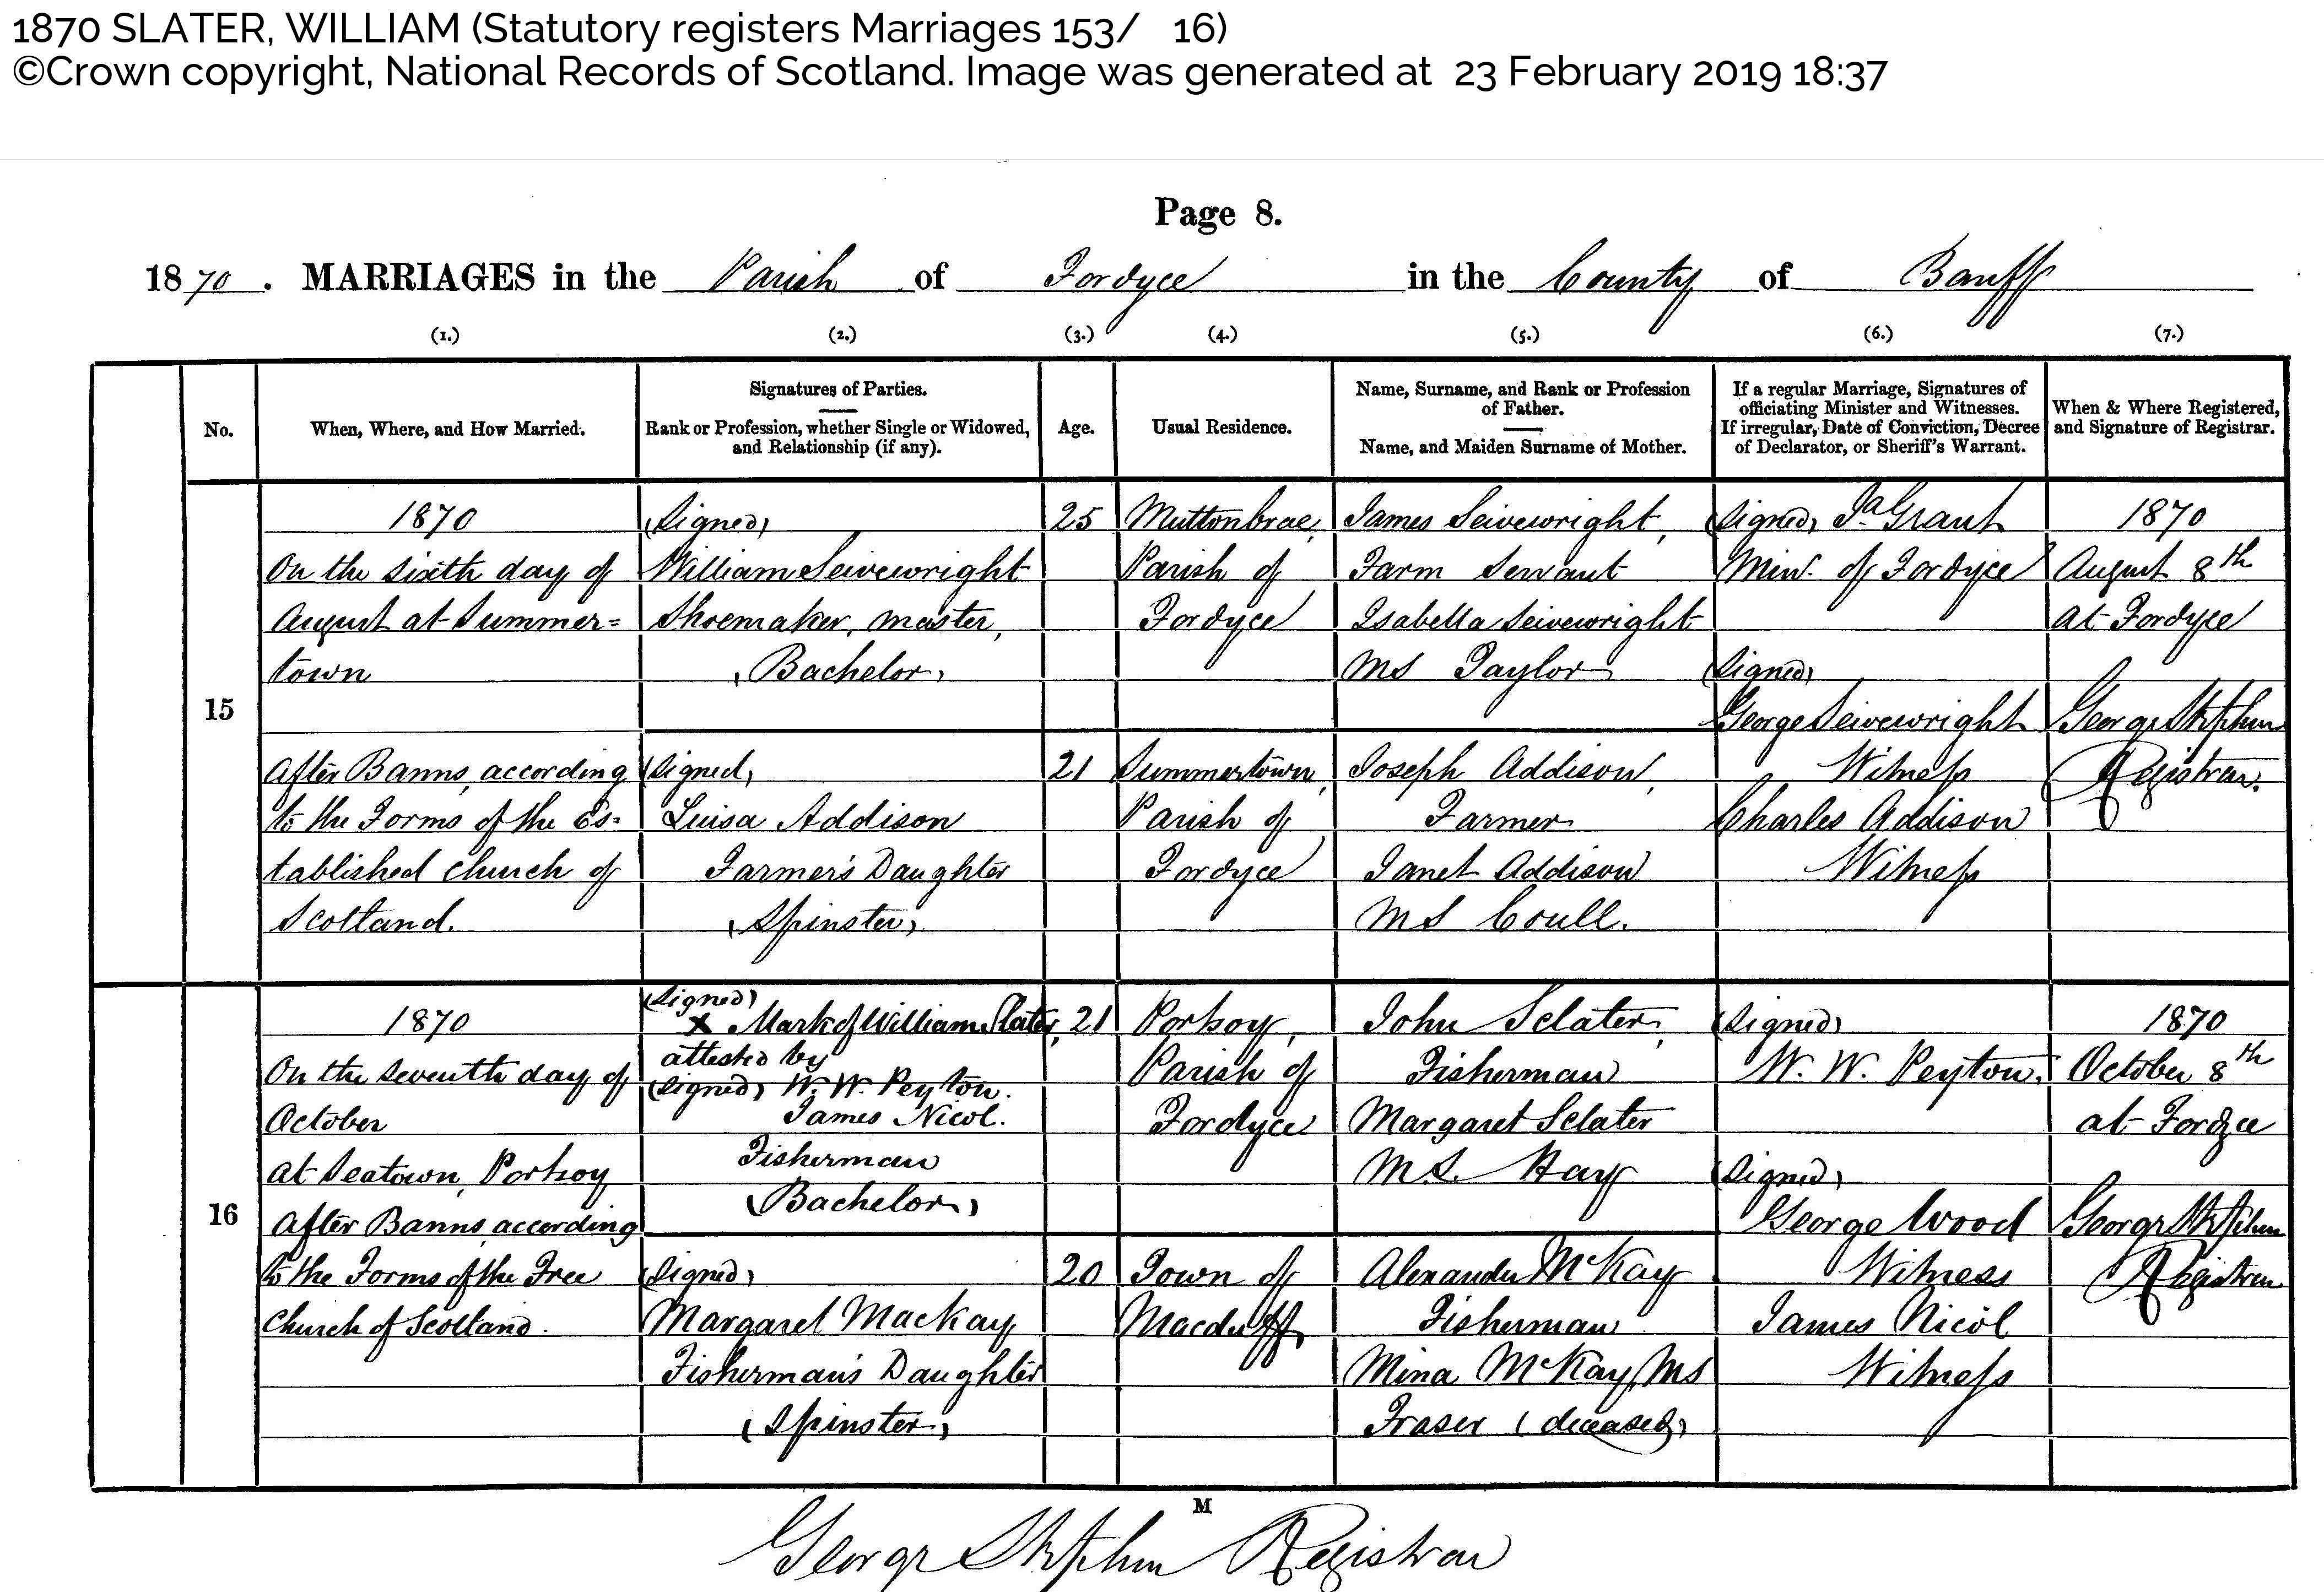 1870 SLATER, WILLIAM (Statutory registers Marriages 153/ 16)
©Crown copyright, National Records of Scotland. Image was generated at 23 February 2019 18:37
Page 8.
1870. MARRIAGES in the Parish of Fordyce in the County of Banff
(1.) (2.) (3.) (4.) (5.) (6.) (7.)
No.
When, Where, and How Married.
Signatures of Parties.
Rank or Profession, whether Single or Widowed,
and Relationship (if any).
Age.
Usual Residence.
Name, Surname, and Rank or Profession
of Father.
Name, and Maiden Surname of Mother.
If a regular Marriage, Signatures of
officiating Minister and Witnesses.
If irregular, Date of Conviction, Decree
of Declarator, or Sheriff's Warrant.
When & Where Registered,
and Signature of Registrar.
15
1870
On the sixth day of
August at Summer=
town
After Banns, according
to the Forms of the Es=
tablished Church of
Scotland.
(Signed)
William Seivewright
Shoemaker, master,
(Bachelor)
(Signed)
Luisa Addison
Farmer's Daughter
(Spinster)
25
21
Muttonbrae,
Parish of
Fordyce
Summertown,
Parish of
Fordyce
James Seivewright,
Farm Servant
Isabella Seivewright
MS Taylor
Joseph Addison,
Farmer
Janet Addison
MS Coull.
(Signed) Ja Grant
Minr. of Fordyce
(Signed)
George Seivewright
Witness
Charles Addison
Witness
1870
August 8th
at Fordyce
George Stephen
Registrar.
16
1870
On the seventh day of
October
at Seatown, Portsoy
After Banns, according
to the Forms of the Free
Church of Scotland.
(Signed)
X Mark of William Slater,
attested by
(Signed) W. W. Peyton.
James Nicol.
Fisherman
(Bachelor)
(Signed)
Margaret Mackay
Fisherman's Daughter
(Spinster)
21
20
Portsoy,
Parish of
Fordyce
Town of
Macduff
John Sclater,
Fisherman
Margaret Sclater
M.S. Hay
Alexander McKay
Fisherman
Mina McKay, MS
Fraser (deceased)
(Signed)
W. W. Peyton.
(Signed)
George Wood
Witness
James Nicol
Witness
1870
October 8th
at Fordyce
George Stephen
Registrar
M
George Stephen Registrar